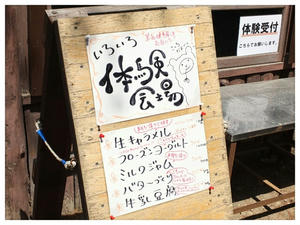 いろいろ
体験
会場
生キャラメル
フローズンヨーグルト
ミルクジャム
バターづくり
牛乳豆腐
体験受付
こちらでお願いします。